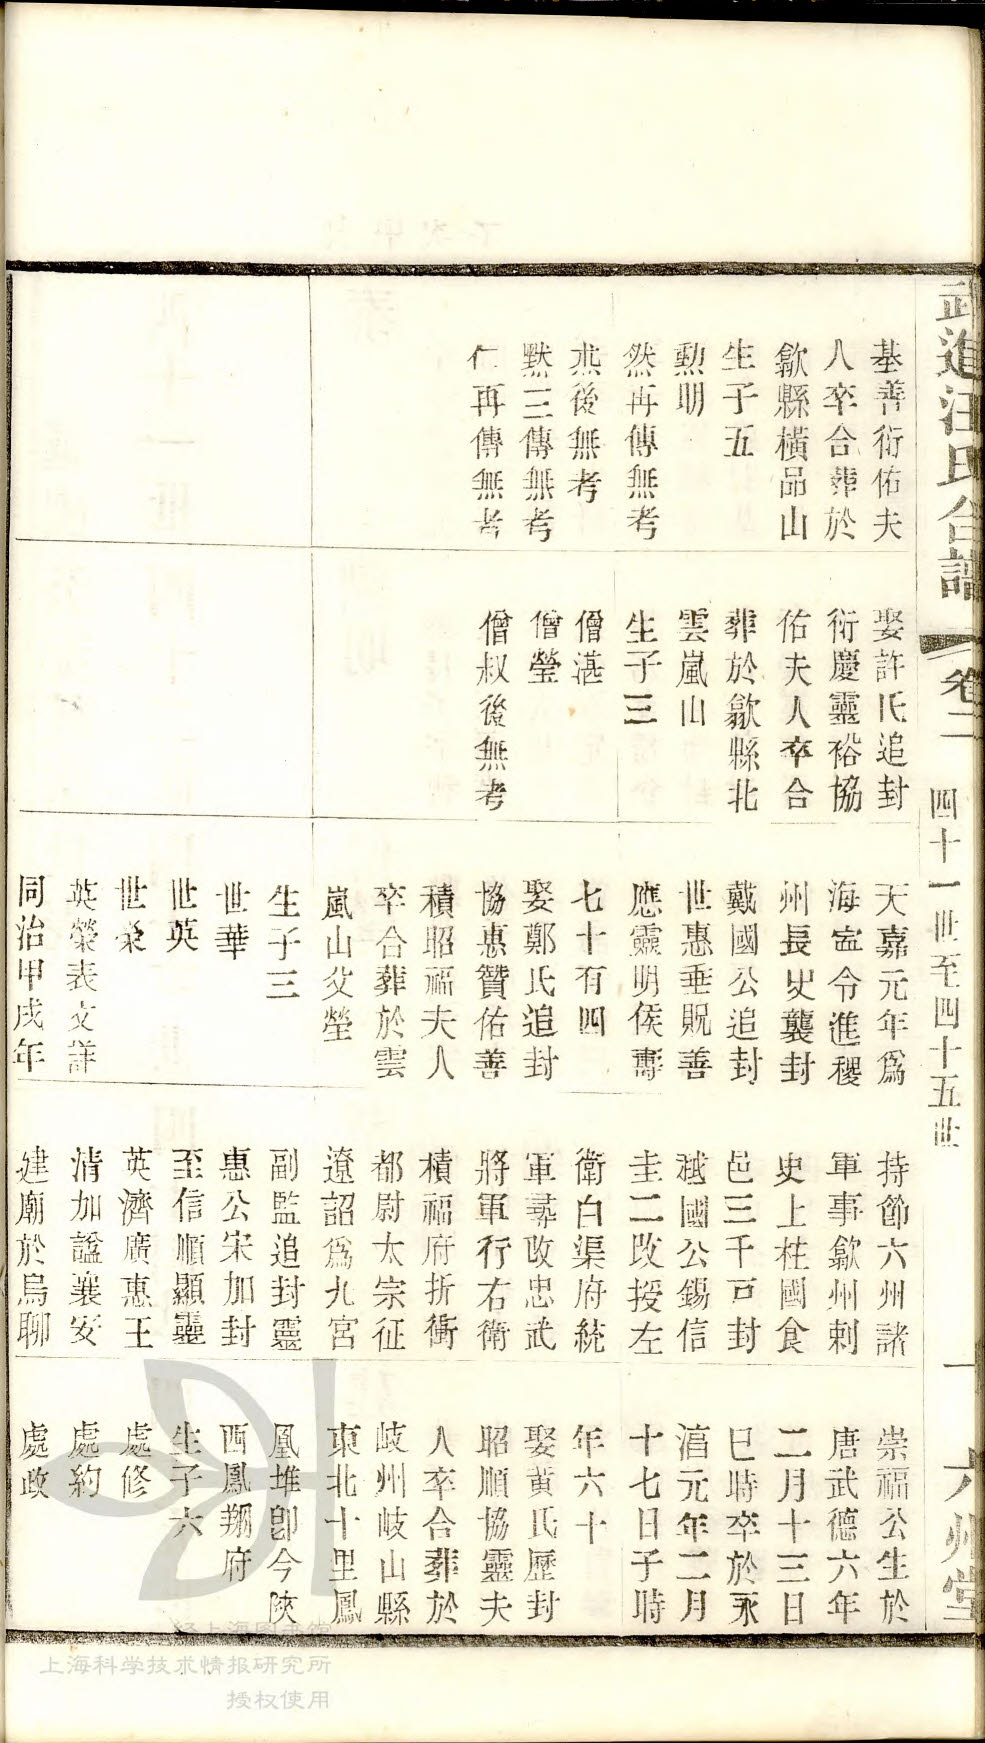 武進汪氏合譜
卷二
四十一世至四十五世
一
六州堂
基善衍佑夫
人卒合葬於
歙縣橫品山
生子五
勲明
然再傳無考
燕後無考
黙三傳無考
仁再傳無考
娶許氏追封
衍慶靈裕協
佑夫人卒合
葬於歙縣北
雲嵐山
生子三
僧湛
僧瑩
僧叔後無考
天嘉元年爲
海寍令進稷
州長史襲封
戴國公追封
世惠垂貺善
應靈明侯壽
七十有四
娶鄭氏追封
協惠贊佑善
積昭福夫人
卒合葬於雲
嵐山父塋
生子三
世華
世英
世榮
英榮表文詳
同治甲戌年
持節六州諸
軍事歙州刺
史上柱國食
邑三千戸封
越國公錫信
圭二改授左
衛白渠府統
軍尋改忠武
將軍行右衛
積福府折衝
都尉太宗征
遼詔爲九宮
副監追封靈
惠公宋加封
至信順顯靈
英濟廣惠王
清加諡襄安
建廟於烏聊
崇福公生於
唐武德六年
二月十三日
巳時卒於永
湻元年二月
十七日子時
年六十
娶黄氏歷封
昭順協靈夫
人卒合葬於
岐州岐山縣
東北十里鳳
凰堆卽今陝
西鳳翔府
生子六
處修
處約
處政
经上海图书馆
上海科学技术情报研究所
授权使用